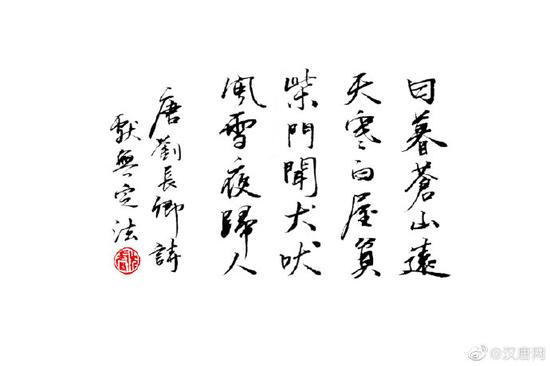 日暮蒼山遠
天寒白屋貧
柴門聞犬吠
風雪夜歸人
唐劉長卿詩
無定法
@汉唐网